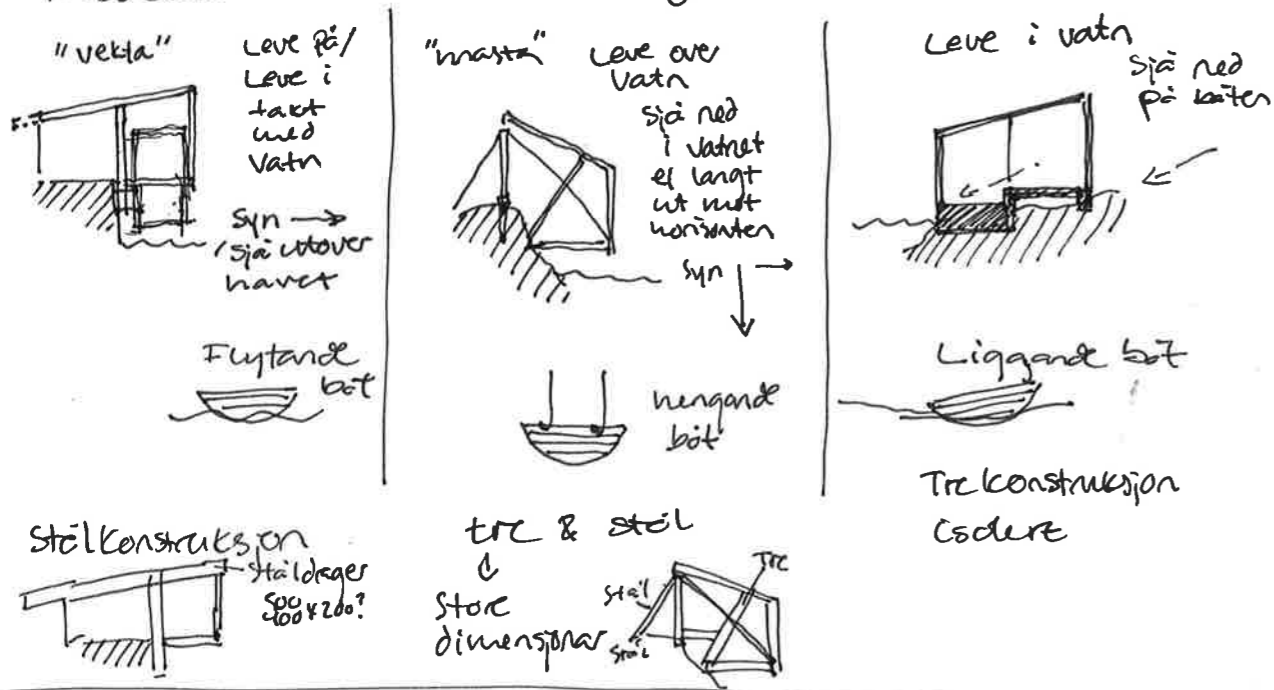 "vekta"
Leve på/
Leve i
takt
med
vatn
syn →
sjå utover
havet
Flytande
båt
Stålkonstruksjon
Ståldrager
500
400x200?
"masta"
Leve over
vatn
sjå ned
i vatnet
el langt
ut mot
horisonten
syn
hengande
båt
tre & stål
Store
dimensjonar
Stål
Stål
Tre
Leve i vatn
sjå ned
på båten
Liggande båt
Trekonstruksjon
isolert